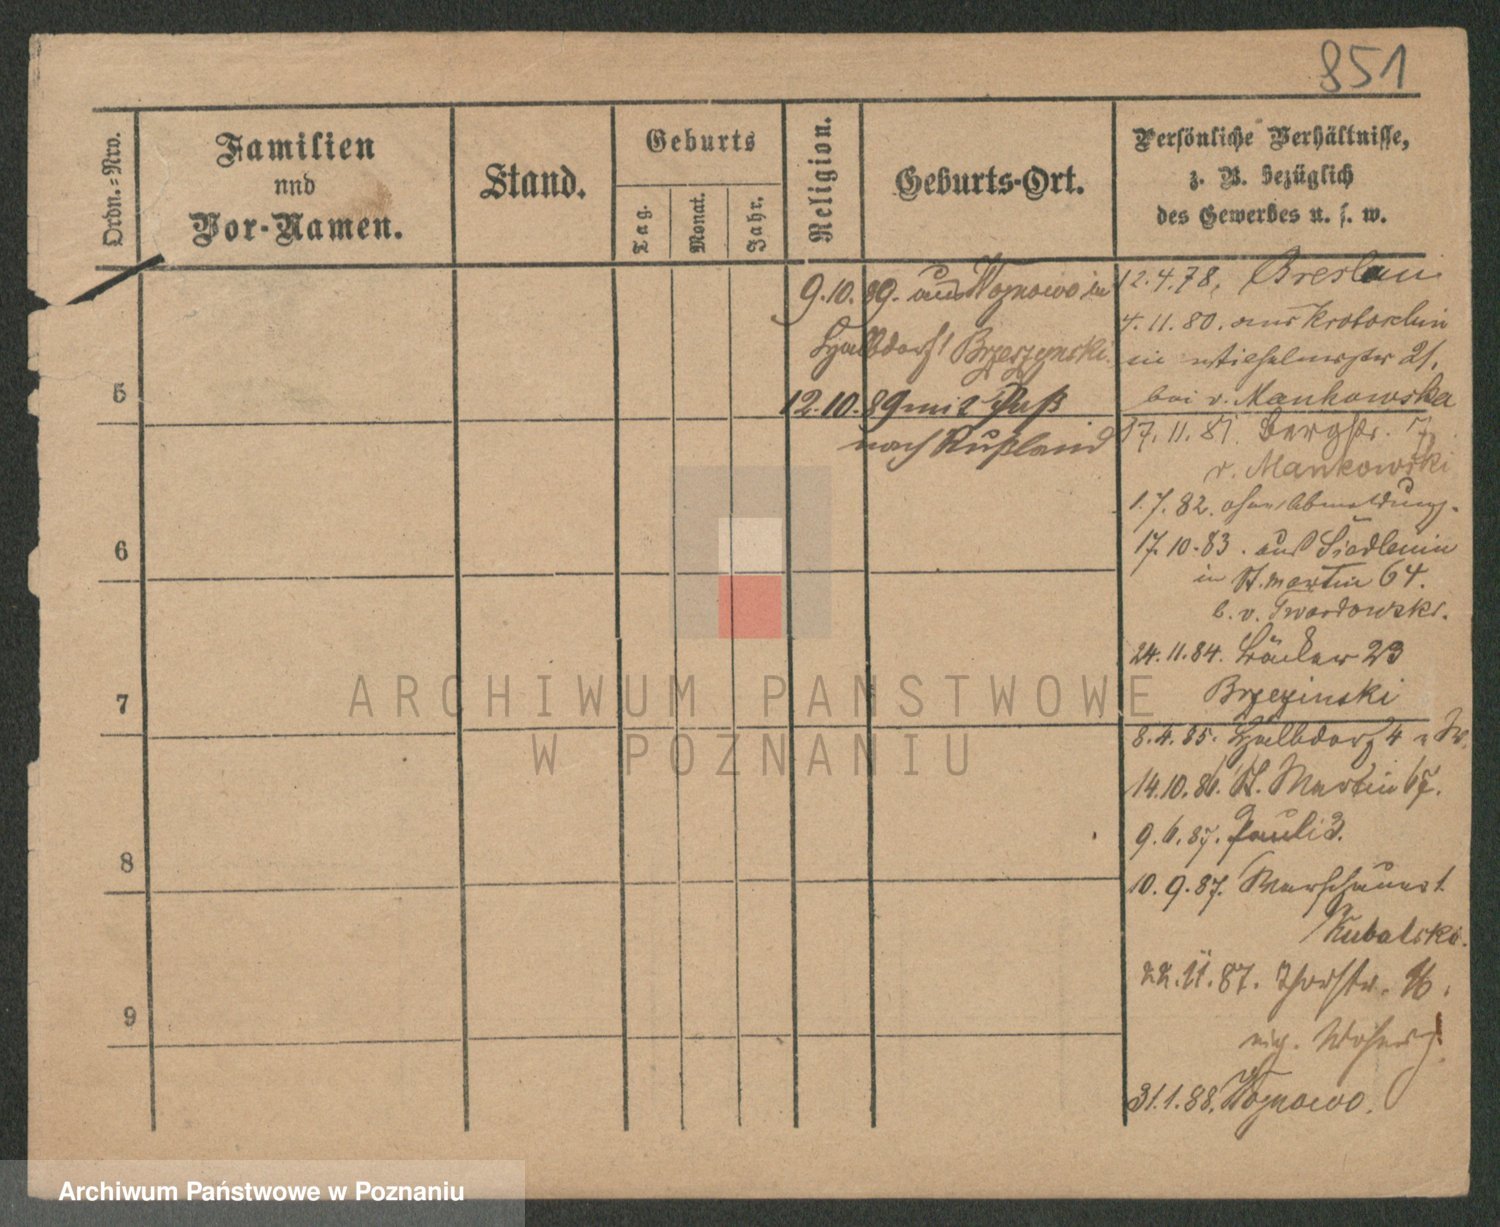 851
Ordn.=Nro.
Familien
und
Vor-Namen.
Stand.
Geburts
Tag.
Monat.
Jahr.
Religion.
Geburts-Ort.
Persönliche Verhältnisse,
z. B. bezüglich
des Gewerbes u. s. w.
5
6
7
8
9
9.10.89. aus Wognowo in
Halbdorf Brzeszynski
12.10.89 mit Paß
nach Rußland
12.4.78, Breslau
4.11.80. aus Krotoschin
in 21,
bei v. Mankowska
17.11.81. Bergstr. 7
v. Mankowski
1.7.82. ohne Abmeldung.
17.10.83. aus Siedlemin
in St. Martin 64.
b. v. Twardowski.
24.11.84. Bäcker 23
Brzezinski
8.4.85. Halbdorf 4
14.10.86. St. Martin 67.
9.6.87. Pauli 3.
10.9.87.
Kubalski.
22.11.87. 16.
eig. Wohng.
31.1.88. Wognowo.
ARCHIWUM PANSTWOWE
W POZNANIU
Archiwum Państwowe w Poznaniu